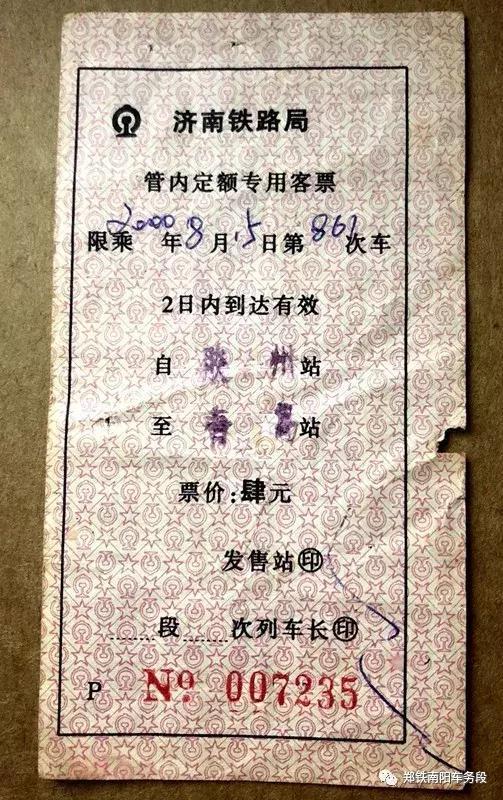 济南铁路局
管内定额专用客票
限乘2000年8月15日第861次车
2日内到达有效
自 胶州 站
至 青岛 站
票价:肆元
发售站印
......段......次列车长印
P № 007235
郑铁南阳车务段